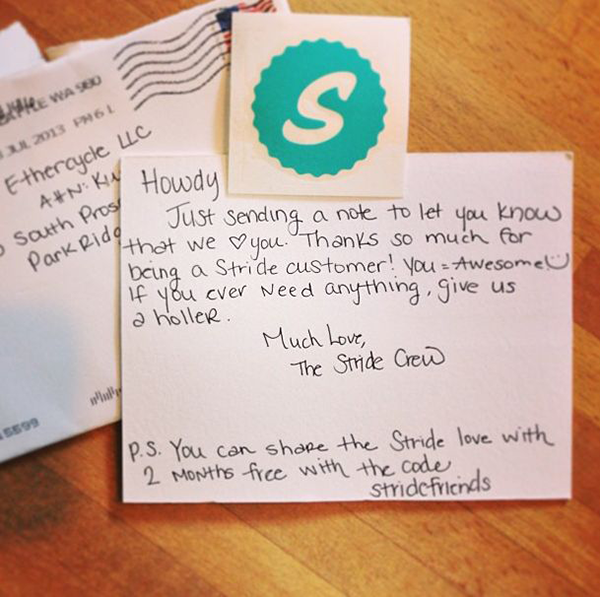 WA 980
JUL 2013 PM 6 L
Ethercycle LLC
Attn:
South
Park Ridge
S
Howdy
Just sending a note to let you know
that we ♡ you. Thanks so much for
being a Stride customer! You = Awesome!
If you ever need anything, give us
a holler.
Much Love,
The Stride Crew
P.S. You can share the Stride love with
2 months free with the code
stridefriends